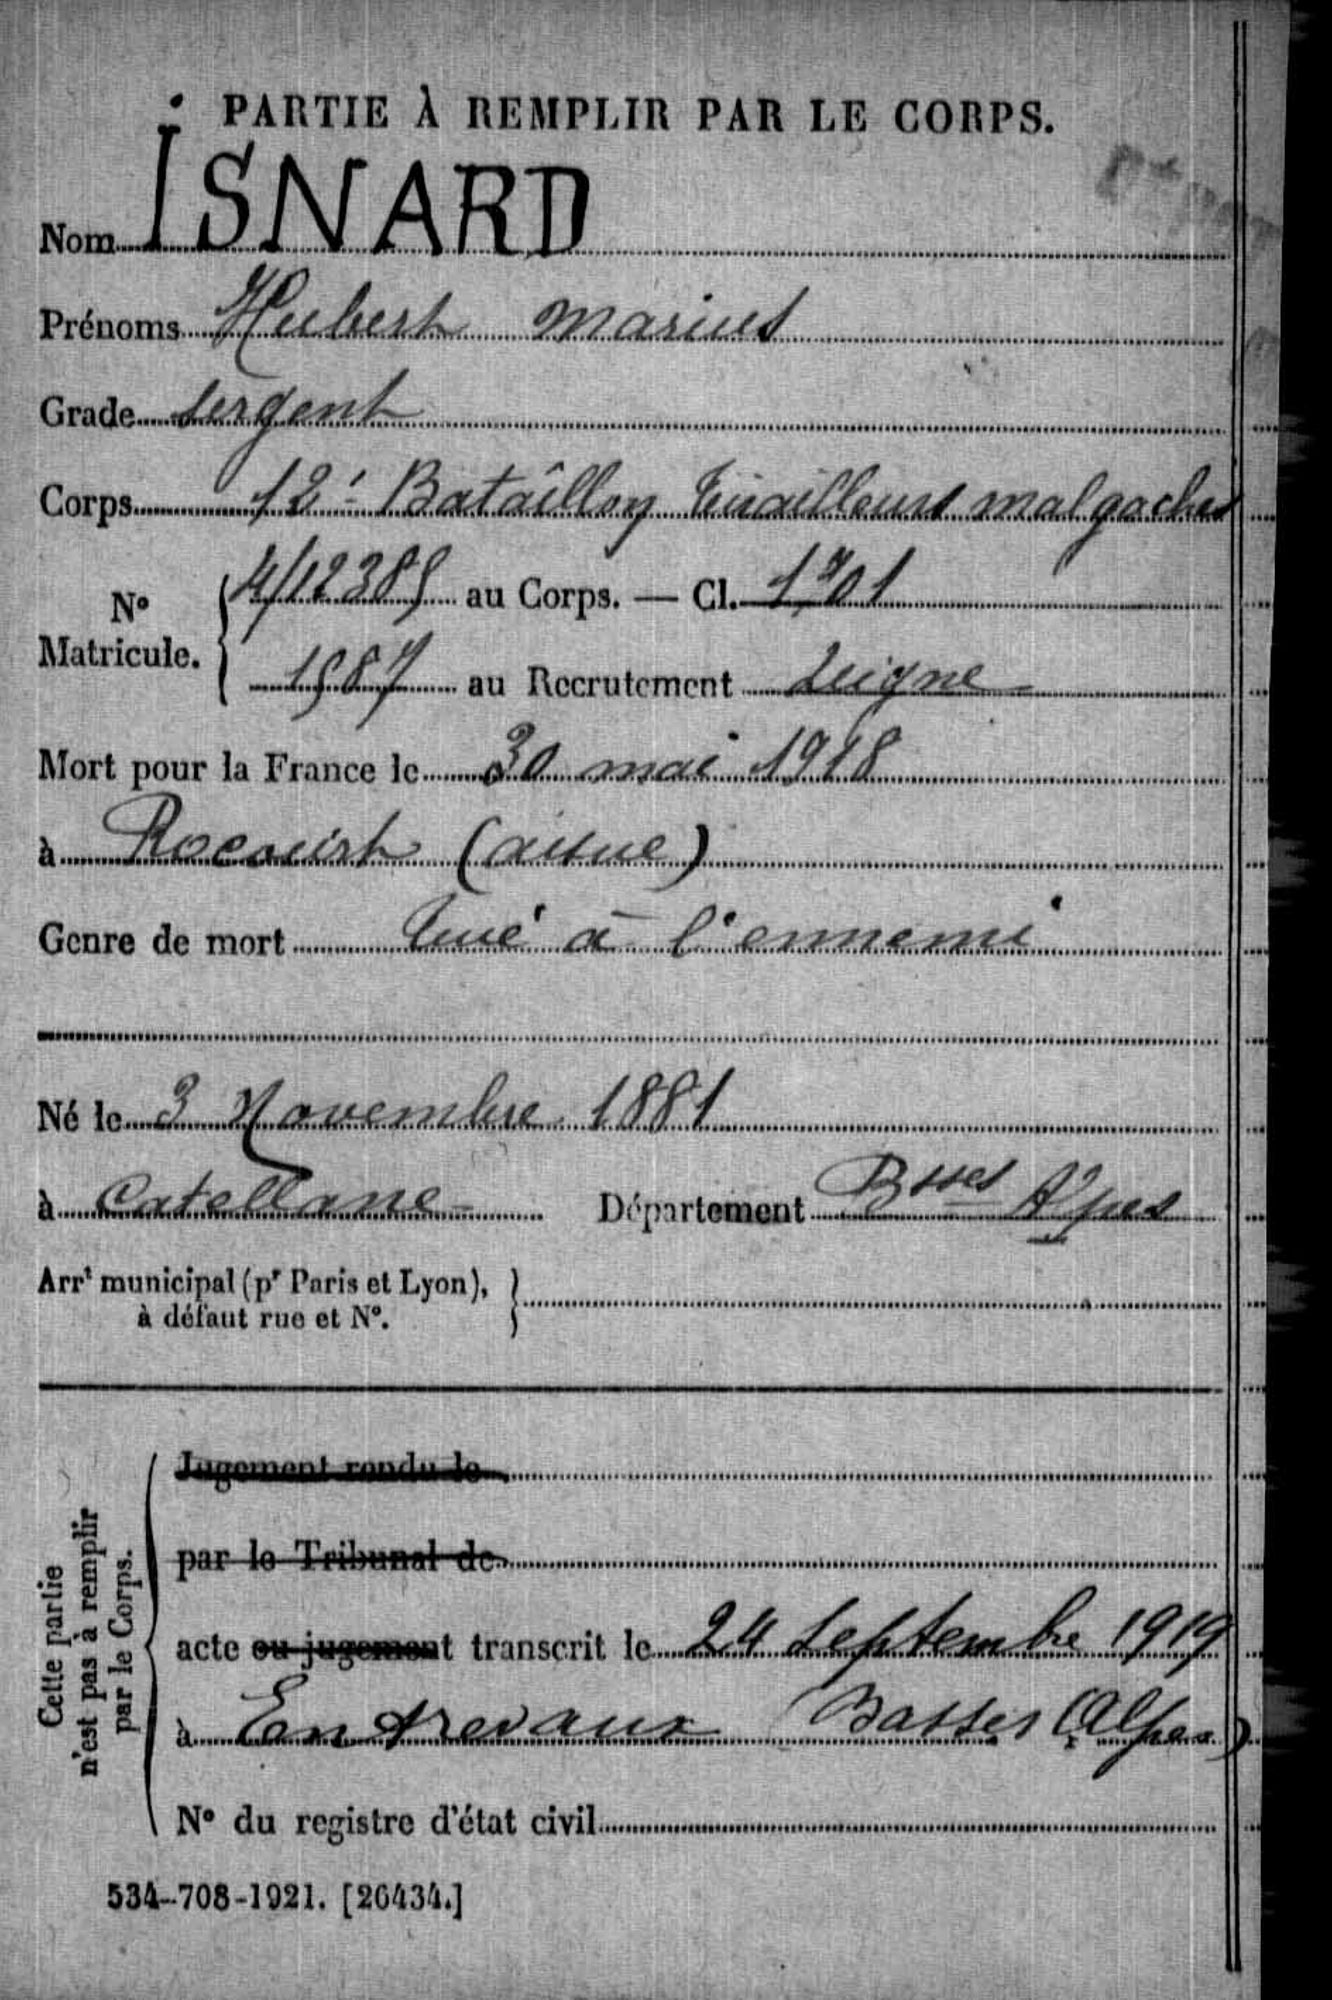 PARTIE À REMPLIR PAR LE CORPS.
Nom ISNARD
Prénoms Hubert Marius
Grade Sergent
Corps 12e Bataillon Tirailleurs malgaches
N° Matricule. 4/12385 au Corps. — Cl. 1901
1987 au Recrutement Digne
Mort pour la France le 30 mai 1918
à Rocourt (aisne)
Genre de mort Tué à l'ennemi
Né le 3 Novembre 1881
à Catellane Département Bsses Alpes
Arrt municipal (pr Paris et Lyon),
à défaut rue et N°.
Cette partie
n'est pas à remplir
par le Corps.
Jugement rendu le
par le Tribunal de
acte ou jugement transcrit le 24 Septembre 1919
à Entrevaux (Basses Alpes)
N° du registre d'état civil
534-708-1921. [26434.]